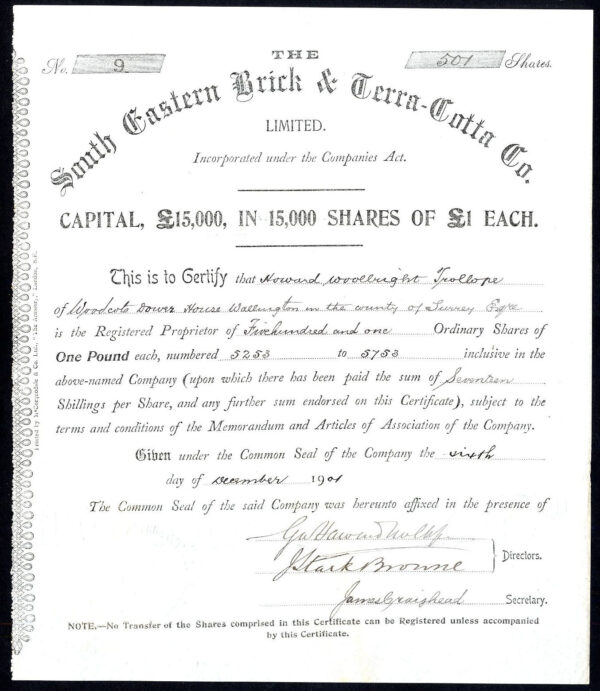 THE
No. 9 501 Shares.
South Eastern Brick & Terra-Cotta Co.
LIMITED.
Incorporated under the Companies Act.
CAPITAL, £15,000, IN 15,000 SHARES OF £1 EACH.
This is to Certify that Howard Woolbright Trollope
of Woodcote Dower House Wallington in the county of Surrey Esqre
is the Registered Proprietor of Fivehundred and one Ordinary Shares of
One Pound each, numbered 5253 to 5753 inclusive in the
above-named Company (upon which there has been paid the sum of Seventeen
Shillings per Share, and any further sum endorsed on this Certificate), subject to the
terms and conditions of the Memorandum and Articles of Association of the Company.
Given under the Common Seal of the Company the sixth
day of December 1901
The Common Seal of the said Company was hereunto affixed in the presence of
J Stark Browne
Directors.
James Craishead Secretary.
NOTE.—No Transfer of the Shares comprised in this Certificate can be Registered unless accompanied
by this Certificate.